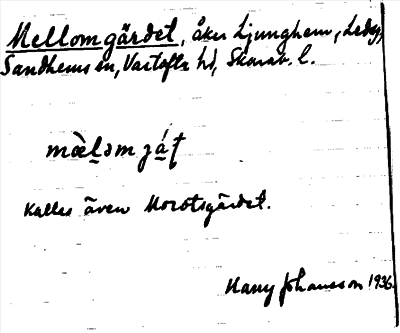 Mellomgärdet, åker Ljunghem,
Sandhems sn, Vartofta hd, Skarab. l.
mæ̀ḷəm já̤ʈ
Kallas även Morotsgärdet.
Harry Johansson 1936.